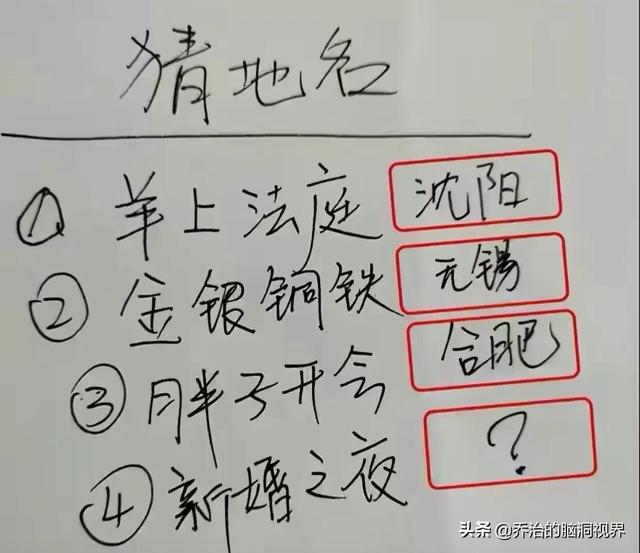 猜地名
① 羊上法庭 沈阳
② 金银铜铁 无锡
③ 胖子开会 合肥
④ 新婚之夜 ?
头条 @乔治的脑洞视界